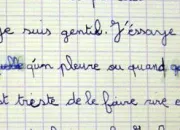 je suis gentil. J'éssaye
qu'on pleure ou quand
st triste de le faire rire e